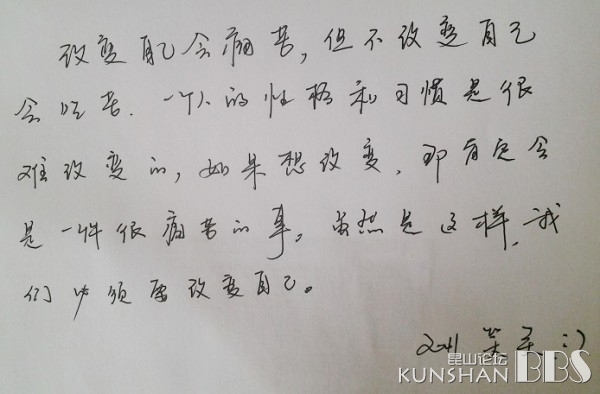 改变自己会痛苦，但不改变自己
会吃苦．一个人的性格和习惯是很
难改变的，如果想改变，那肯定会
是一件很痛苦的事。虽然是这样，我
们必须要改变自己。
:)
昆山论坛
KUNSHAN BBS